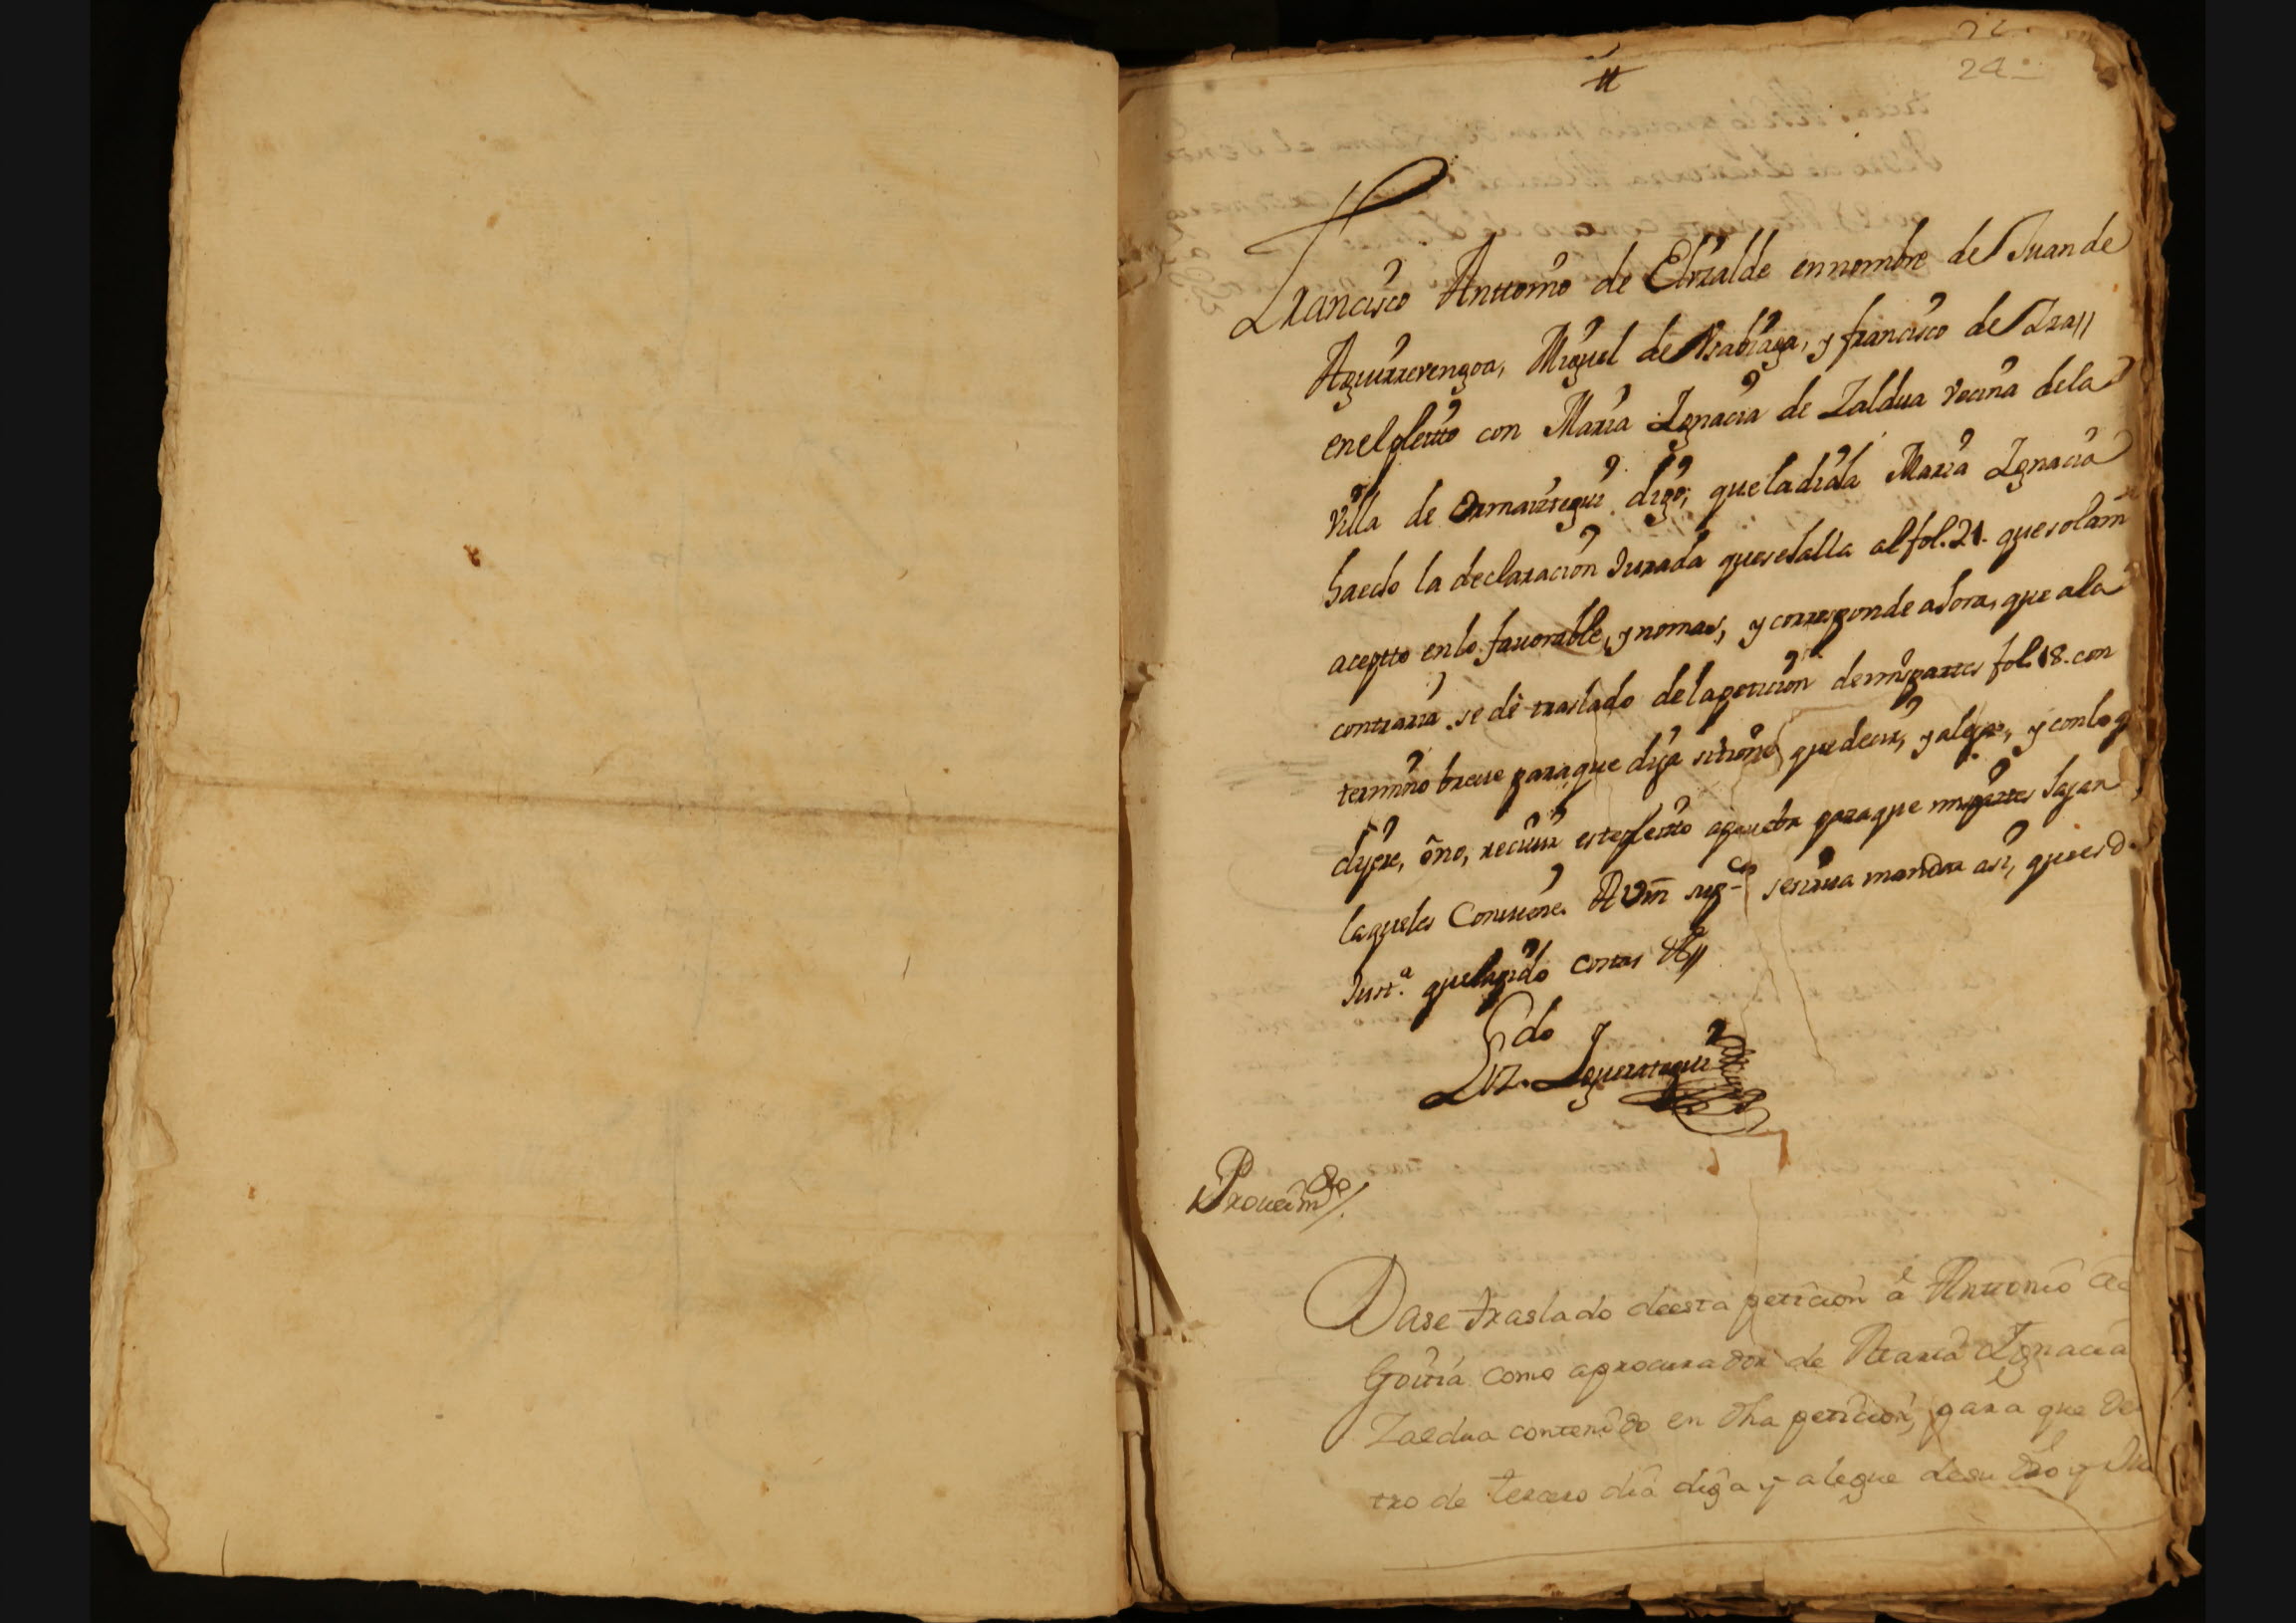 24
Francisco Anttonio de Elizalde en nombre de Juan de
Aguirrevengoa, Miguel de Vsabiaga, y francisco de
en el pleitto con Maria Ignacia de Zaldua vecina de la
villa de Ormaiztegui digo, que la dicha Maria Ignacia
ha echo la declaracion Jurada que se halla al fol. 21. que solam
aceptto en lo fauorable, y no mas, y corresponde ahora, que a la
contraria se dè traslado de la peticion de mis partes fol. 18. con
termino breue para que diga si tiene que decir, y alegar, y con lo q
dijere, ò no, reciuir este pleitto a prueba para que mis partes hagan
la que les Conuiene. A Vm sup.co se sirua mandar asi, que es de
Just.a que la pido costas &.
Liz.do Leguartegui
Proueim.to
Dase traslado de esta peticion á Antonio de
Goitia como a procurador de Maria Ignacia
Zaldua contenido en dha peticion, para que den
tro de tercero dia diga y alegue de su dro y Jus